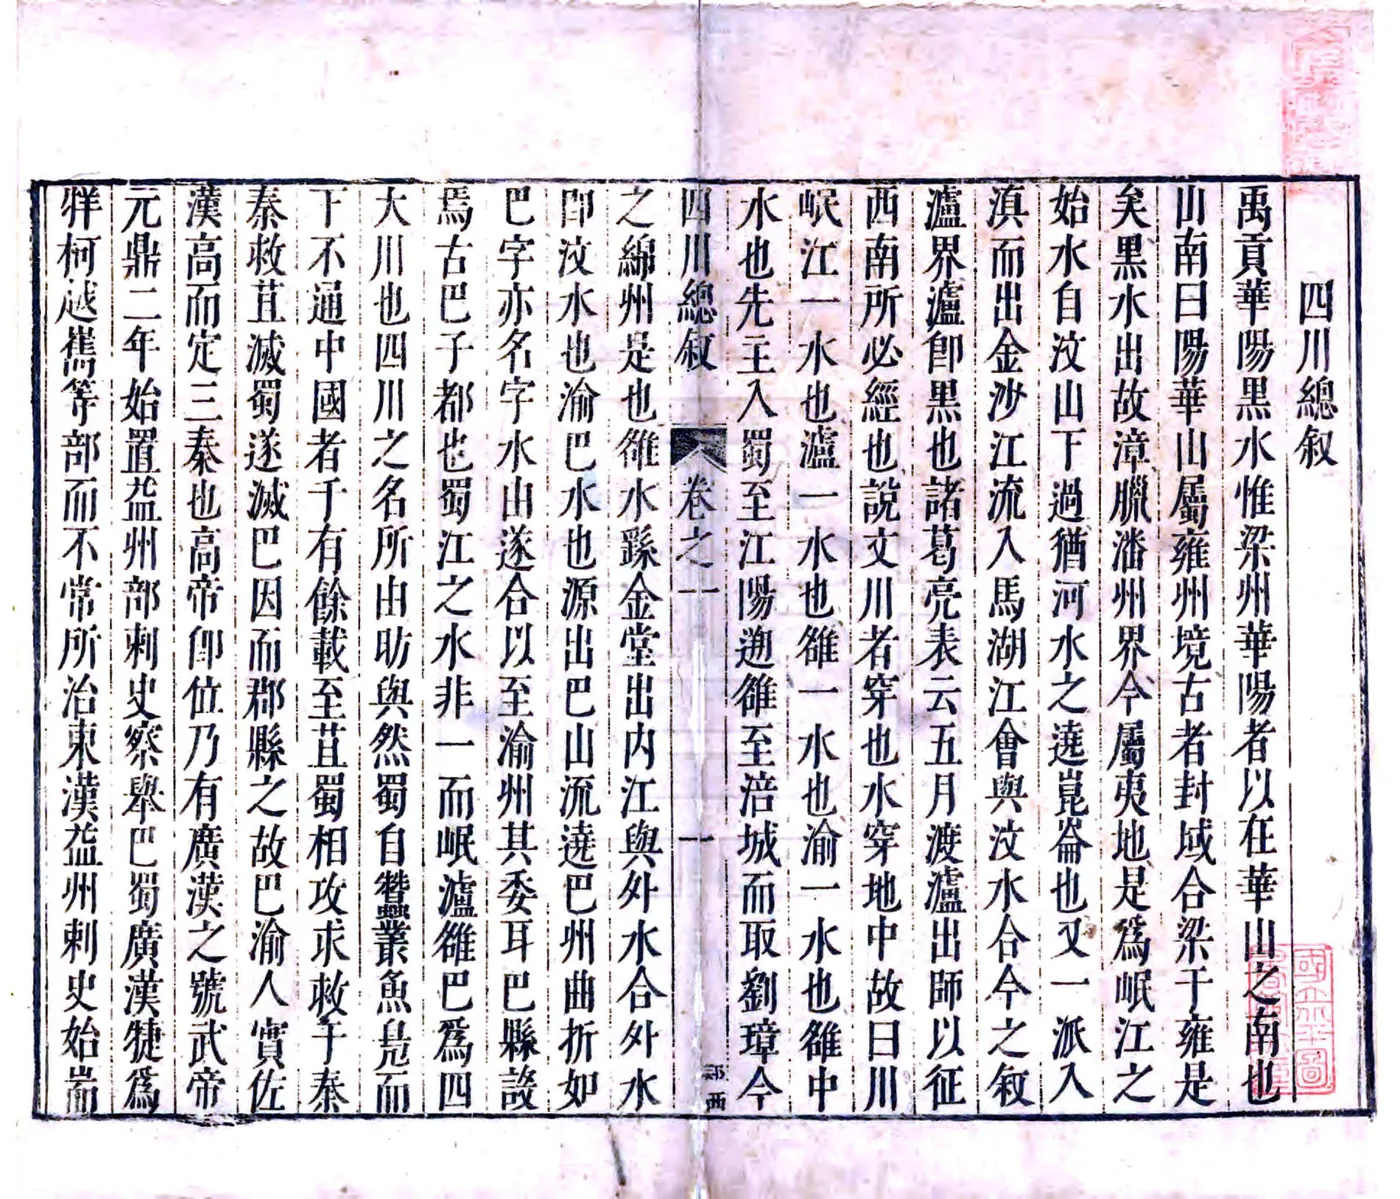 四川總叙
禹貢華陽黑水惟梁州華陽者以在華山之南也
山南曰陽華山屬雍州境古者封域合梁于雍是
矣黑水出故漳臘潘州界今屬夷地是爲岷江之
始水自汶山下過猶河水之遶崑崙也又一派入
滇而出金沙江流入馬湖江會與汶水合今之叙
瀘界瀘卽黑也諸葛亮表云五月渡瀘出師以征
西南所必經也說文川者穿也水穿地中故曰川
岷江一水也瀘一水也雒一水也渝一水也雒中
水也先主入蜀至江陽遡雒至涪城而取劉璋今
四川總叙
卷之一
一
郎西
之綿州是也雒水繇金堂出内江與外水合外水
卽汶水也渝巴水也源出巴山流遶巴州曲折如
巴字亦名字水由遂合以至渝州其委耳巴縣諺
焉古巴子都也蜀江之水非一而岷瀘雒巴爲四
大川也四川之名所由昉與然蜀自蠶叢魚鳧而
下不通中國者千有餘載至苴蜀相攻求救于秦
秦救苴滅蜀遂滅巴因而郡縣之故巴渝人實佐
漢高而定三秦也高帝卽位乃有廣漢之號武帝
元鼎二年始置益州部刺史察舉巴蜀廣漢犍爲
牂柯越嶲等部而不常所治東漢益州刺史始耑